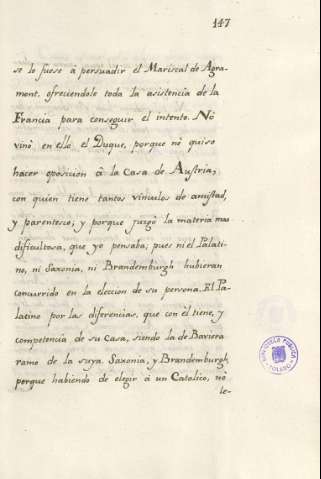 147
se lo fuese à persuadir el Mariscal de Agra-
mont, ofreciendole toda la asistencia de la
Francia para conseguir el intento. Nò
vinò en ello el Duque, porque nò quiso
hacer oposicion à la Casa de Austria,
con quien tiene tantos vinculos de amistad,
y parentesco; y porque juzgò la materia mas
dificultosa, que yo pensaba; pues ni el Palati-
no, ni Saxonia, ni Brandemburgh hubieran
concurrido en la eleccion de su persona. El Pa-
latino por las diferencias, que con èl tiene, y
competencia de su Casa, siendo la de Baviera
ramo de la suya. Saxonia, y Brandemburgh,
porque habiendo de elegir à un Catolico, nò
le-
BIBLIOTECA PUBLICA
TOLEDO